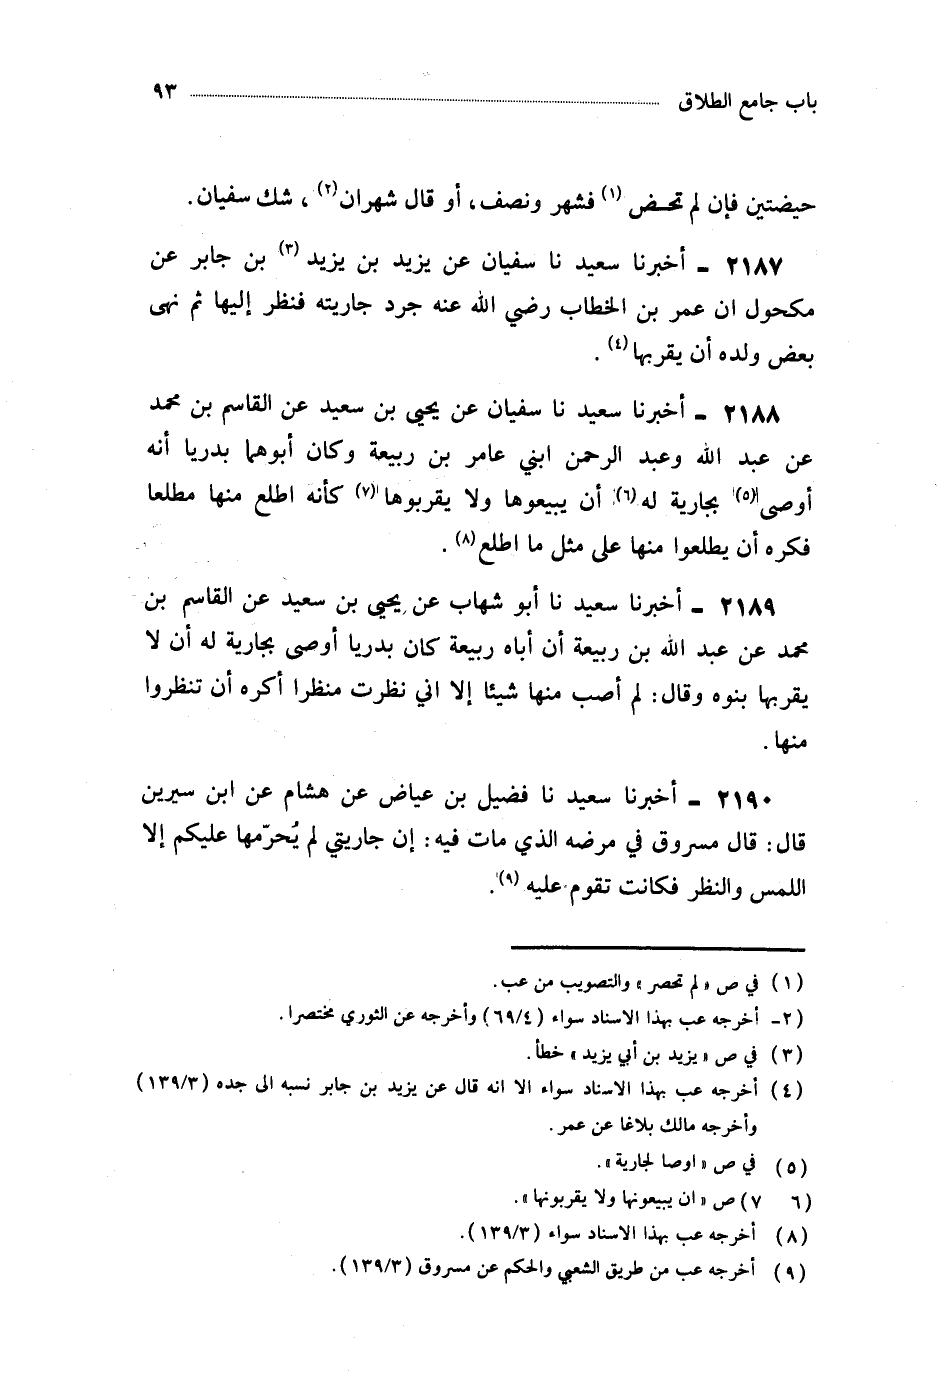 باب جامع الطلاق ٩٣
حيضتين فإن لم تحض (١) فشهر ونصف، أو قال شهران (٢) ، شك سفيان.
٢١٨٧ ـ أخبرنا سعيد نا سفيان عن يزيد بن يزيد (٣) بن جابر عن
مكحول ان عمر بن الخطاب رضي الله عنه جرد جاريته فنظر إليها ثم نهى
بعض ولده أن يقربها (٤) .
٢١٨٨ ـ أخبرنا سعيد نا سفيان عن يحيى بن سعيد عن القاسم بن محمد
عن عبد الله وعبد الرحمن ابني عامر بن ربيعة وكان أبوهما بدريا أنه
أوصى (٥) بجارية له (٦) أن يبيعوها ولا يقربوها (٧) كأنه اطلع منها مطلعا
فكره أن يطلعوا منها على مثل ما اطلع (٨) .
٢١٨٩ ـ أخبرنا سعيد نا أبو شهاب عن يحيى بن سعيد عن القاسم بن
محمد عن عبد الله بن ربيعة أن أباه ربيعة كان بدريا أوصى بجارية له أن لا
يقربها بنوه وقال: لم أصب منها شيئا إلا اني نظرت منظرا أكره أن تنظروا
منها .
٢١٩٠ ـ أخبرنا سعيد نا فضيل بن عياض عن هشام عن ابن سيرين
قال: قال مسروق في مرضه الذي مات فيه: إن جاريتي لم يُحرّمها عليكم إلا
اللمس والنظر فكانت تقوم عليه (٩).
(١) في ص « لم تحصر » والتصويب من عب.
(٢ـ أخرجه عب بهذا الاسناد سواء (٦٩/٤) وأخرجه عن الثوري مختصرا.
(٣) في ص « يزيد بن أبي يزيد » خطأ.
(٤) أخرجه عب بهذا الاسناد سواء الا انه قال عن يزيد بن جابر نسبه الى جده (١٣٩/٣)
وأخرجه مالك بلاغا عن عمر.
(٥) في ص « اوصا لجارية ».
(٦ ٧) ص « ان يبيعونها ولا يقربونها ».
(٨) أخرجه عب بهذا الاسناد سواء (١٣٩/٣).
(٩) أخرجه عب من طريق الشعبي والحكم عن مسروق (١٣٩/٣).